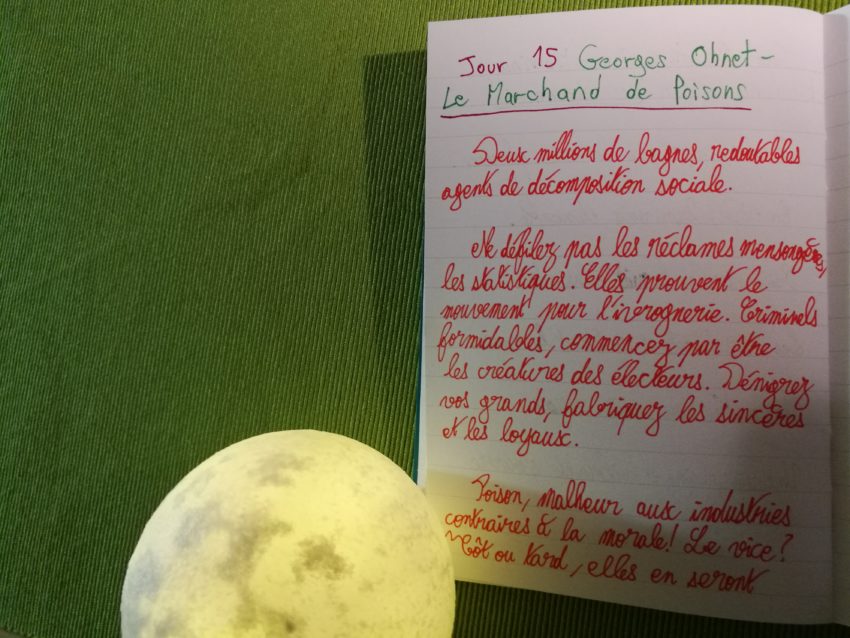 Jour 15 Georges Ohnet -
Le Marchand de Poisons
Deux millions de bagnes, redoutables
agents de décomposition sociale.
Ne défilez pas les réclames mensongères,
les statistiques. Elles prouvent le
mouvement pour l'ivrognerie. Criminels
formidables, commencez par être
les créatures des électeurs. Dénigrez
vos grands, fabriquez les sincères
et les loyaux.
Poison, malheur aux industries
contraires à la morale! Le vice?
Tôt ou tard, elles en seront